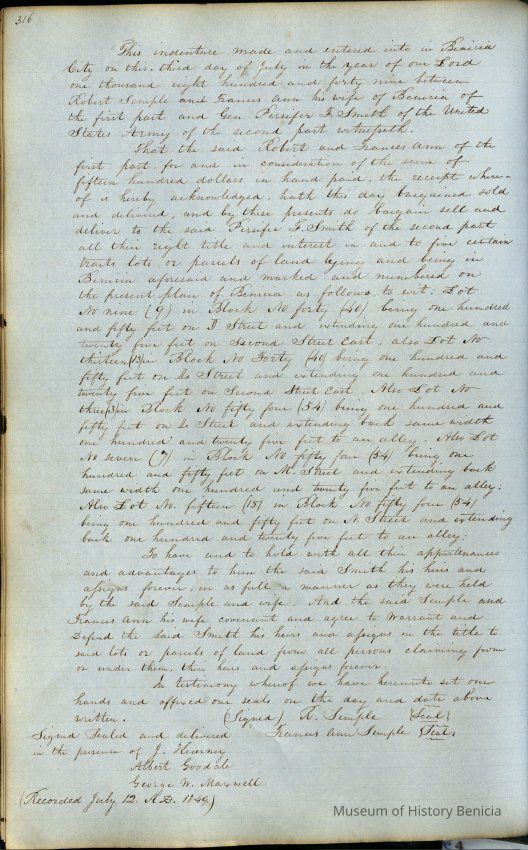 316
This indenture made and entered into in Benicia
City on this third day of July in the year of our Lord
one thousand eight hundred and forty nine between
Robert Semple and Frances Ann his wife of Benicia of
the first part and Gen Persefer F. Smith of the United
States Army of the second part witnesseth.
That the said Robert and Frances Ann of the
first part, for and in consideration of the sum of
fifteen hundred dollars in hand paid, the receipt where-
of is hereby acknowledged, hath this day bargained sold
and delivered, and by these presents do bargain sell and
deliver to the said Persifer F. Smith of the second part
all their right title and interest in and to five certain
tracts lots or parcels of land lying and being in
Benicia aforesaid and marked and numbered on
the present plan of Benicia as follows, to wit: Lot
No nine (9) in Block No forty (40) being one hundred
and fifty feet on Street and extending one hundred and
twenty five feet on Second Street East; also Lot No
thirteen (13) in Block No Forty (40) being one hundred and
fifty feet on Street and extending one hundred and
twenty five feet on Second Street East. Also Lot No
three (3) in Block No fifty four (54) being one hundred and
fifty feet on Street and extending back same width
one hundred and twenty five feet to an alley. Also Lot
No seven (7) in Block No fifty four (54) being one
hundred and fifty feet on M Street and extending back
same width one hundred and twenty five feet to an alley;
Also Lot No. fifteen (15) in Block No fifty four (54)
being one hundred and fifty feet on N. Street and extending
back one hundred and twenty five feet to an alley:
To have and to hold with all their appurtenances
and advantages to him the said Smith his heirs and
assigns forever, in as full a manner as they were held
by the said Semple and wife. And the said Semple and
Frances Ann his wife covenant and agree to warrant and
defend the said Smith his heirs and assigns in the title to
said lots or parcels of land from all persons claiming from
or under them, their heirs and assigns forever.
In testimony whereof we have hereunto set our
hands and affixed our seals on the day and date above
written. (Signed) R. Semple (Seal)
Signed Sealed and delivered Frances Ann Semple (Seal)
in the presence of J. Kearney
Albert Goodale
George W. Maxwell.
(Recorded July 12. A.D. 1849)
Museum of History Benicia